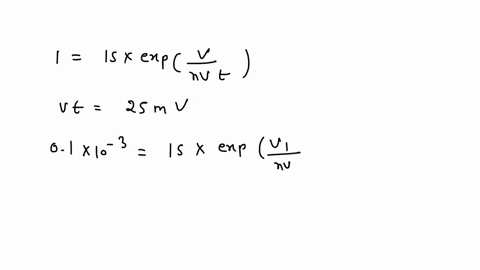 I = Is x exp(V/nVt)
Vt = 25 mV
0.1 x 10^-3 = Is x exp(V1/nV